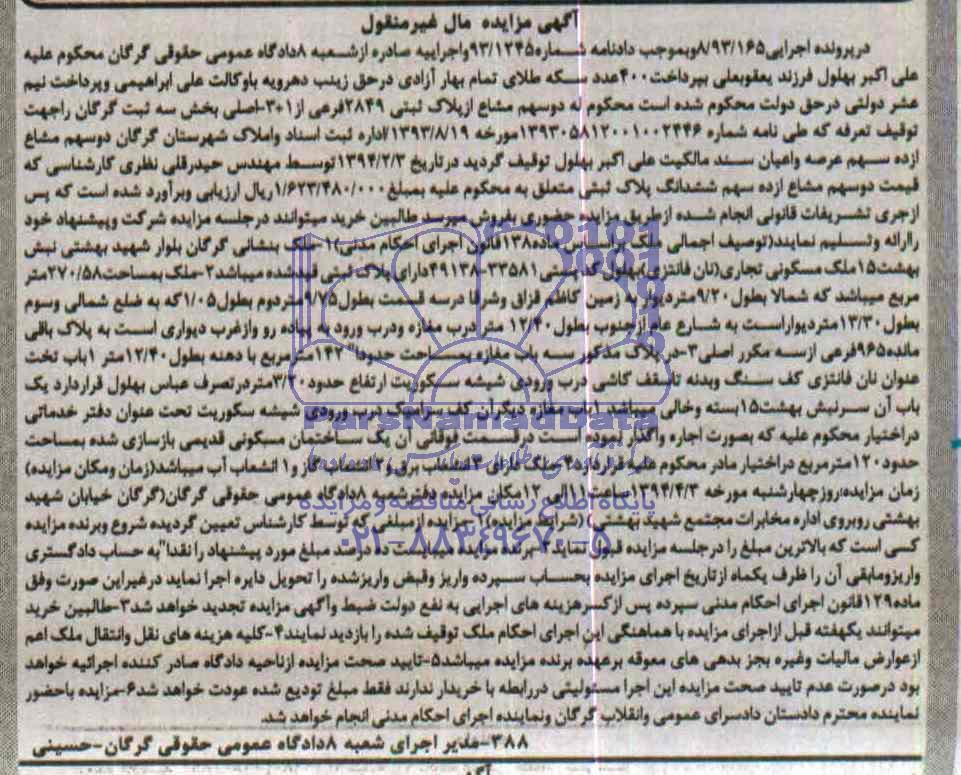 آگهی مزایده مال غیرمنقول
درپرونده اجرایی۸/۹۳/۱۶۵وبموجب دادنامه شماره۹۳/۱۲۴۵واجراییه صادره ازشعبه ۸دادگاه عمومی حقوقی گرگان محکوم علیه
علی اکبر بهلول فرزند یعقوبعلی بپرداخت۴۰۰عدد سکه طلای تمام بهار آزادی درحق زینب دهرویه باوکالت علی ابراهیمی وپرداخت نیم
عشر دولتی درحق دولت محکوم شده است محکوم له دوسهم مشاع ازپلاک ثبتی ۲۸۴۹فرعی از۳۰۱-اصلی بخش سه ثبت گرگان راجهت
توقیف تعرفه که طی نامه شماره ۱۳۹۳۰۵۸۱۲۰۰۱۰۰۲۴۴۶مورخه ۱۳۹۳/۸/۱۹اداره ثبت اسناد واملاک شهرستان گرگان دوسهم مشاع
ازده سهم عرصه واعیان سند مالکیت علی اکبر بهلول توقیف گردید درتاریخ ۱۳۹۴/۲/۳توسط مهندس حیدرقلی نظری کارشناسی که
قیمت دوسهم مشاع ازده سهم ششدانگ پلاک ثبتی متعلق به محکوم علیه بمبلغ۱/۶۲۳/۴۸۰/۰۰۰ریال ارزیابی وبرآورد شده است که پس
ازجری تشریفات قانونی انجام شده ازطریق مزایده حضوری بفروش میرسد طالبین خرید میتوانند درجلسه مزایده شرکت وپیشنهاد خود
راارائه وتسلیم نمایند(توصیف اجمالی ملک براساس ماده۱۳۸قانون اجرای احکام مدنی)۱-ملک بنشانی گرگان بلوار شهید بهشتی نبش
بهشت۱۵ملک مسکونی تجاری(نان فانتزی)بهلول کدپستی ۳۳۵۸۱-۴۹۱۳۸دارای پلاک ثبتی قیدشده میباشد۲-ملک بمساحت۲۷۰/۵۸متر
مربع میباشد که شمالا بطول۹/۲۰متردیوار به زمین کاظم قزاق وشرقا درسه قسمت بطول۹/۷۵متردوم بطول۱/۰۵که به ضلع شمالی وسوم
بطول۱۳/۳۰متردیواراست به شارع عام ازجنوب بطول۱۲/۴۰ متر درب مغازه ودرب ورود به پیاده رو وازغرب دیواری است به پلاک باقی
مانده۹۶۵فرعی ازسه مکرر اصلی۳-در پلاک مذکور سه باب مغازه بمساحت حدودا"۱۴۲مترمربع با دهنه بطول۱۲/۴۰متر ۱باب تخت
عنوان نان فانتزی کف سنگ وبدنه تاسقف کاشی درب ورودی شیشه سکوریت ارتفاع حدود۳/۲۰متردرتصرف عباس بهلول قراردارد یک
باب آن سرنبش بهشت۱۵بسته وخالی میباشد ۱باب مغازه دیگرآن کف سرامیک درب ورودی شیشه سکوریت تحت عنوان دفتر خدماتی
دراختیار محکوم علیه که بصورت اجاره واگذار نموده است درقسمت فوقانی آن یک ساختمان مسکونی قدیمی بازسازی شده بمساحت
حدود۱۲۰مترمربع دراختیار مادر محکوم علیه قراردارد۴-ملک دارای ۳انشعاب برق و۲انشعاب گاز و۱ انشعاب آب میباشد(زمان ومکان مزایده)
زمان مزایده:روزچهارشنبه مورخه ۱۳۹۴/۴/۳ساعت۱۱الی ۱۲مکان مزایده دفترشعبه ۸دادگاه عمومی حقوقی گرگان(گرگان خیابان شهید
بهشتی روبروی اداره مخابرات مجتمع شهید بهشتی) (شرایط مزایده)۱-مزایده ازمبلغی که توسط کارشناس تعیین گردیده شروع وبرنده مزایده
کسی است که بالاترین مبلغ را درجلسه مزایده قبول نماید۲-برنده مزایده میبایست ده درصد مبلغ مورد پیشنهاد را نقدا"به حساب دادگستری
واریزومابقی آن را ظرف یکماه ازتاریخ اجرای مزایده بحساب سپرده واریز وقبض واریزشده را تحویل دایره اجرا نماید درغیراین صورت وفق
ماده۱۲۹قانون اجرای احکام مدنی سپرده پس ازکسرهزینه های اجرایی به نفع دولت ضبط وآگهی مزایده تجدید خواهد شد۳-طالبین خرید
میتوانند یکهفته قبل ازاجرای مزایده با هماهنگی این اجرای احکام ملک توقیف شده را بازدید نمایند۴-کلیه هزینه های نقل وانتقال ملک اعم
ازعوارض مالیات وغیره بجز بدهی های معوقه برعهده برنده مزایده میباشد۵-تایید صحت مزایده ازناحیه دادگاه صادر کننده اجرائیه خواهد
بود درصورت عدم تایید صحت مزایده این اجرا مسئولیتی دررابطه با خریدار ندارند فقط مبلغ تودیع شده عودت خواهد شد۶-مزایده باحضور
نماینده محترم دادستان دادسرای عمومی وانقلاب گرگان ونماینده اجرای احکام مدنی انجام خواهد شد.
۳۸۸-مدیر اجرای شعبه ۸دادگاه عمومی حقوقی گرگان-حسینی
ParsNamadData
پایگاه اطلاع رسانی مناقصه و مزایده
۰۲۱-۸۸۳۴۹۶۷۰-۵